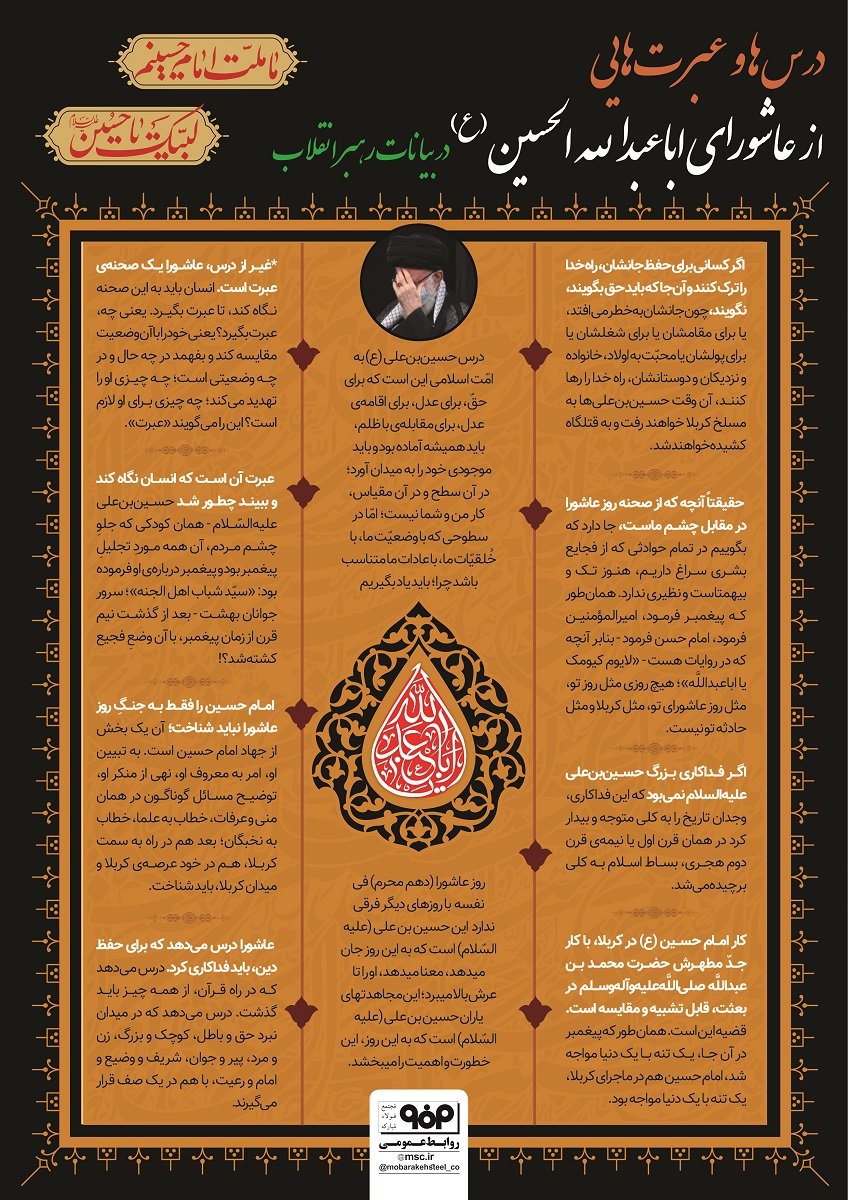 درس‌ها و عبرت‌هایی
از عاشورای اباعبدالله الحسین (ع) در بیانات رهبر انقلاب
ما ملت امام حسینیم
لبیک یا حسین علیه‌السلام
اگر کسانی برای حفظ جانشان، راه خدا
را ترک کنند و آن جا که باید حق بگویند،
نگویند، چون جانشان به خطر می‌افتد،
یا برای مقامشان یا برای شغلشان یا
برای پولشان یا محبّت به اولاد، خانواده
و نزدیکان و دوستانشان، راه خدا را رها
کنند، آن وقت حسین‌بن‌علی‌ها به
مسلخ کربلا خواهند رفت و به قتلگاه
کشیده خواهند شد.
حقیقتاً آنچه که از صحنه روز عاشورا
در مقابل چشم ماست، جا دارد که
بگوییم در تمام حوادثی که از فجایع
بشری سراغ داریم، هنوز تک و
بیهمتاست و نظیری ندارد. همان‌طور
که پیغمبر فرمود، امیرالمؤمنین
فرمود، امام حسن فرمود - بنابر آنچه
که در روایات هست - «لایوم کیومک
یا اباعبداللَّه»؛ هیچ روزی مثل روز تو،
مثل روز عاشورای تو، مثل کربلا و مثل
حادثه تو نیست.
اگر فداکاری بزرگ حسین‌بن‌علی
علیه‌السلام نمی‌بود که این فداکاری،
وجدان تاریخ را به کلی متوجه و بیدار
کرد در همان قرن اول یا نیمه‌ی قرن
دوم هجری، بساط اسلام به کلی
برچیده می‌شد.
کار امام حسین (ع) در کربلا، با کار
جدّ مطهرش حضرت محمد بن
عبداللَّه صلی‌اللَّه‌علیه‌وآله‌وسلم در
بعثت، قابل تشبیه و مقایسه است.
قضیه این است. همان طور که پیغمبر
در آن جا، یک تنه با یک دنیا مواجه
شد، امام حسین هم در ماجرای کربلا،
یک تنه با یک دنیا مواجه بود.
درس حسین‌بن‌علی (ع) به
امّت اسلامی این است که برای
حقّ، برای عدل، برای اقامه‌ی
عدل، برای مقابله‌ی با ظلم،
باید همیشه آماده بود و باید
موجودی خود را به میدان آورد؛
در آن سطح و در آن مقیاس،
کار من و شما نیست؛ امّا در
سطوحی که با وضعیّت ما، با
خُلقیّات ما، با عادات ما متناسب
باشد چرا؛ باید یاد بگیریم
یا اباعبدالله
روز عاشورا (دهم محرم) فی
نفسه با روزهای دیگر فرقی
ندارد این حسین بن علی (علیه
السّلام) است که به این روز جان
میدهد، معنا میدهد، او را تا
عرش بالا میبرد؛ این مجاهدتهای
یاران حسین بن علی (علیه
السّلام) است که به این روز، این
خطورت و اهمیت را میبخشد.
*غیر از درس، عاشورا یک صحنه‌ی
عبرت است. انسان باید به این صحنه
نگاه کند، تا عبرت بگیرد. یعنی چه،
عبرت بگیرد؟ یعنی خود را با آن وضعیت
مقایسه کند و بفهمد در چه حال و در
چه وضعیتی است؛ چه چیزی او را
تهدید می‌کند؛ چه چیزی برای او لازم
است؟ این را می‌گویند «عبرت».
عبرت آن است که انسان نگاه کند
و ببیند چطور شد حسین‌بن‌علی
علیه‌السّلام - همان کودکی که جلوِ
چشم مردم، آن همه موردِ تجلیلِ
پیغمبر بود و پیغمبر درباره‌ی او فرموده
بود: «سیّد شباب اهل الجنه»؛ سرور
جوانان بهشت - بعد از گذشت نیم
قرن از زمان پیغمبر، با آن وضعِ فجیع
کشته شد؟!
امام حسین را فقط به جنگِ روز
عاشورا نباید شناخت؛ آن یک بخش
از جهاد امام حسین است. به تبیین
او، امر به معروف او، نهی از منکر او،
توضیح مسائل گوناگون در همان
منی و عرفات، خطاب به علما، خطاب
به نخبگان؛ بعد هم در راه به سمت
کربلا، هم در خود عرصه‌ی کربلا و
میدان کربلا، باید شناخت.
عاشورا درس می‌دهد که برای حفظ
دین، باید فداکاری کرد. درس می‌دهد
که در راه قرآن، از همه چیز باید
گذشت. درس می‌دهد که در میدان
نبرد حق و باطل، کوچک و بزرگ، زن
و مرد، پیر و جوان، شریف و وضیع و
امام و رعیت، با هم در یک صف قرار
می‌گیرند.
مجتمع
فولاد
مبارکه
روابط عمومی
msc.ir
@mobarakehsteel_co